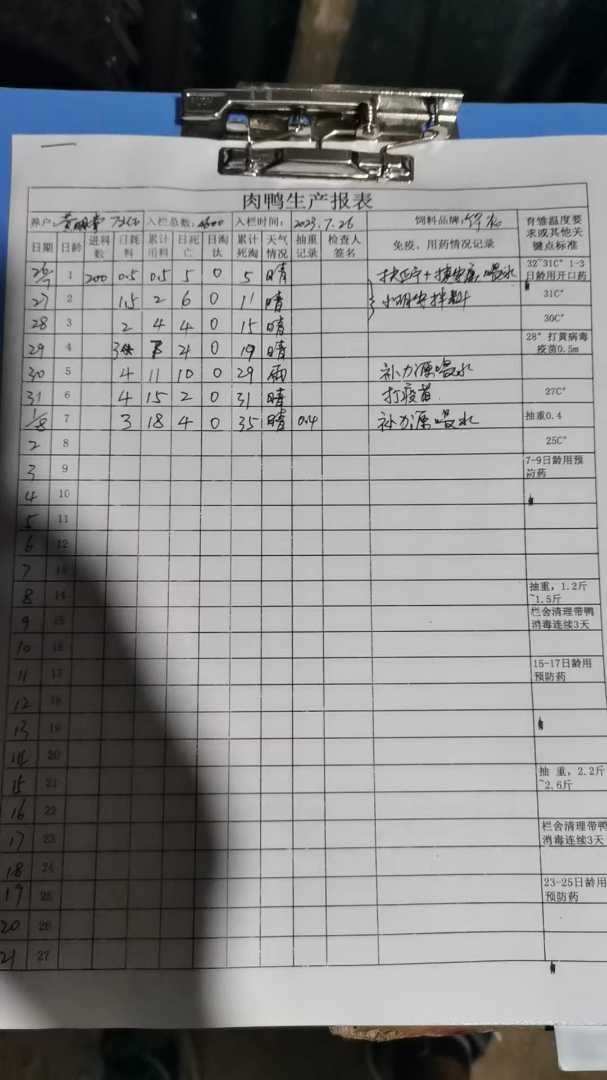 肉鸭生产报表
养户: 入栏总数: 入栏时间: 2023.7.26 饲料品牌: 育雏温度要求或其他关键点标准
日期 日龄 进料数 日耗料 累计用料 日死亡 日淘汰 累计死淘 天气情况 抽重记录 检查人签名 免疫、用药情况记录
26/7 1 200 0.5 0.5 5 0 5 晴 喂水 32~31C°1-3日龄用开口药
27 2 1.5 2 6 0 11 晴 拌料 31C°
28 3 2 4 4 0 15 晴 30C°
29 4 3 4 0 19 晴 28°打黄病毒疫苗0.5m
30 5 4 11 10 0 29 雨 补力源喂水
31 6 4 15 2 0 31 晴 打疫苗 27C°
1/8 7 3 18 4 0 35 晴 0.4 补力源喂水 抽重0.4
2 8 25C°
3 9 7-9日龄用预防药
4 10
5 11
6 12
7 13
8 14 抽重，1.2斤~1.5斤
9 15 栏舍清理带鸭消毒连续3天
10 16
11 17 15-17日龄用预防药
12 18
13 19
14 20
15 21 抽 重，2.2斤~2.6斤
16 22
17 23 栏舍清理带鸭消毒连续3天
18 24
19 25 23-25日龄用预防药
20 26
21 27